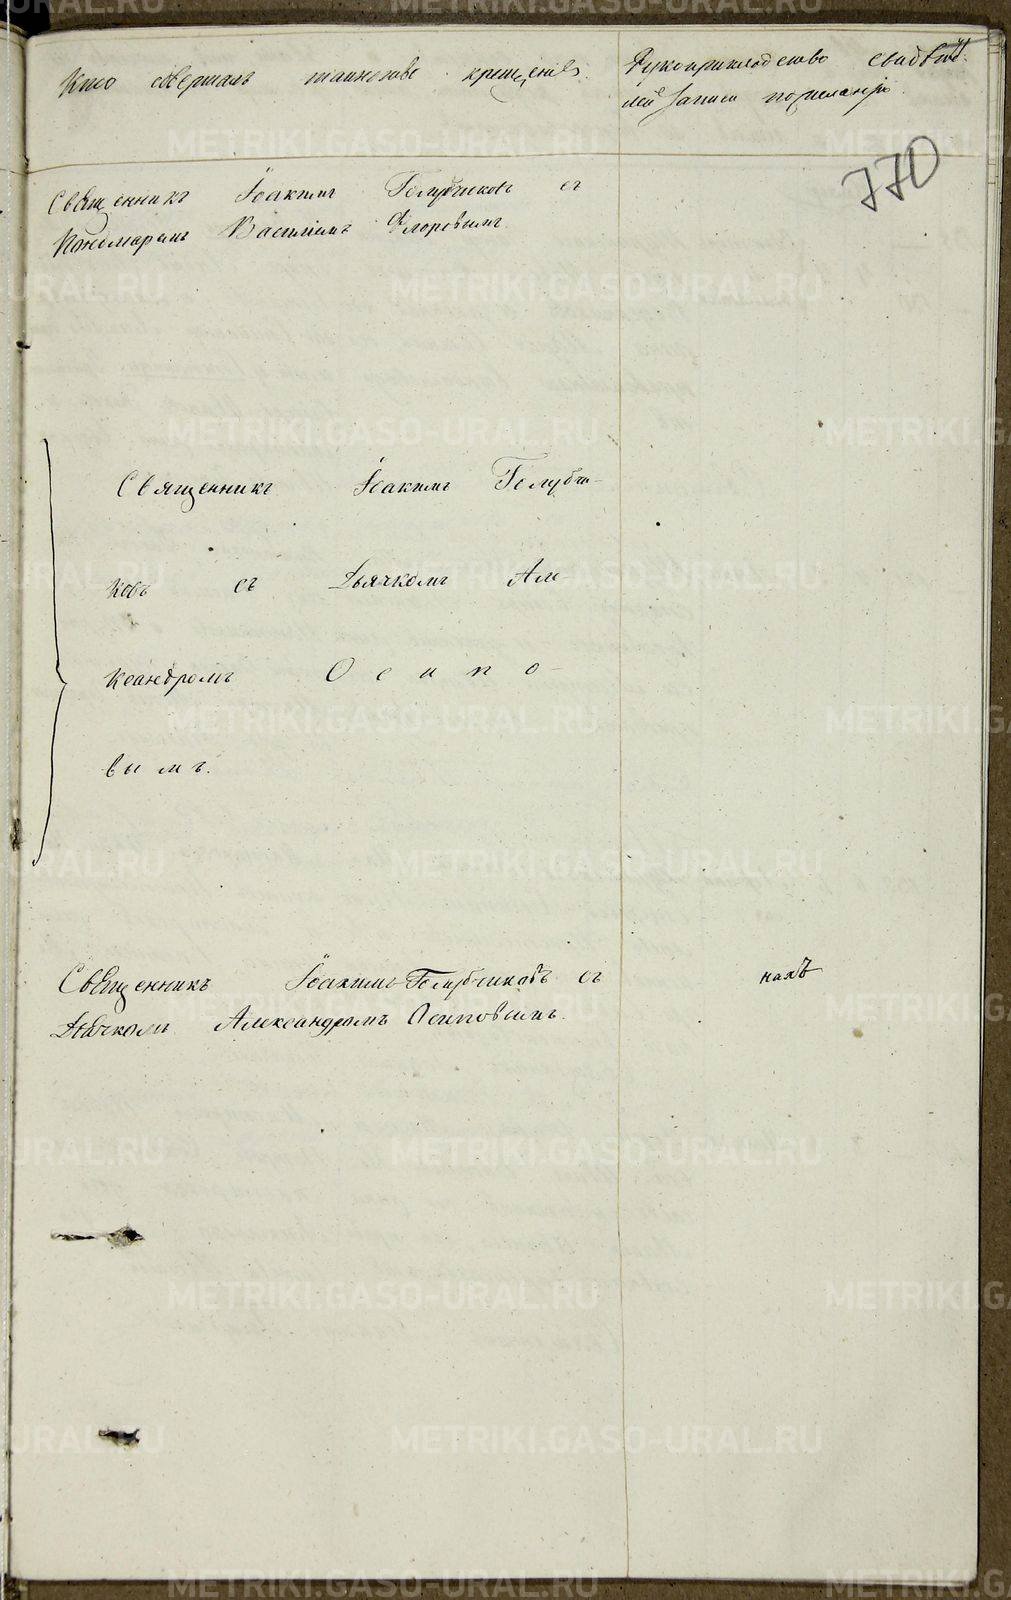 Кто совершалъ таинство крещенія.
Рукоприкладство свидѣте-
лей записи по желанію.
770
Священникъ Іоакимъ Голубчиковъ съ
Пономаремъ Василіемъ Флоровымъ.
Священникъ Іоакимъ Голубчи-
ковъ съ Дьячкомъ Але-
ксандромъ Осипо-
вымъ.
Священникъ Іоакимъ Голубчиковъ съ
Дьячкомъ Александромъ Осиповымъ.
METRIKI.GASO-URAL.RU